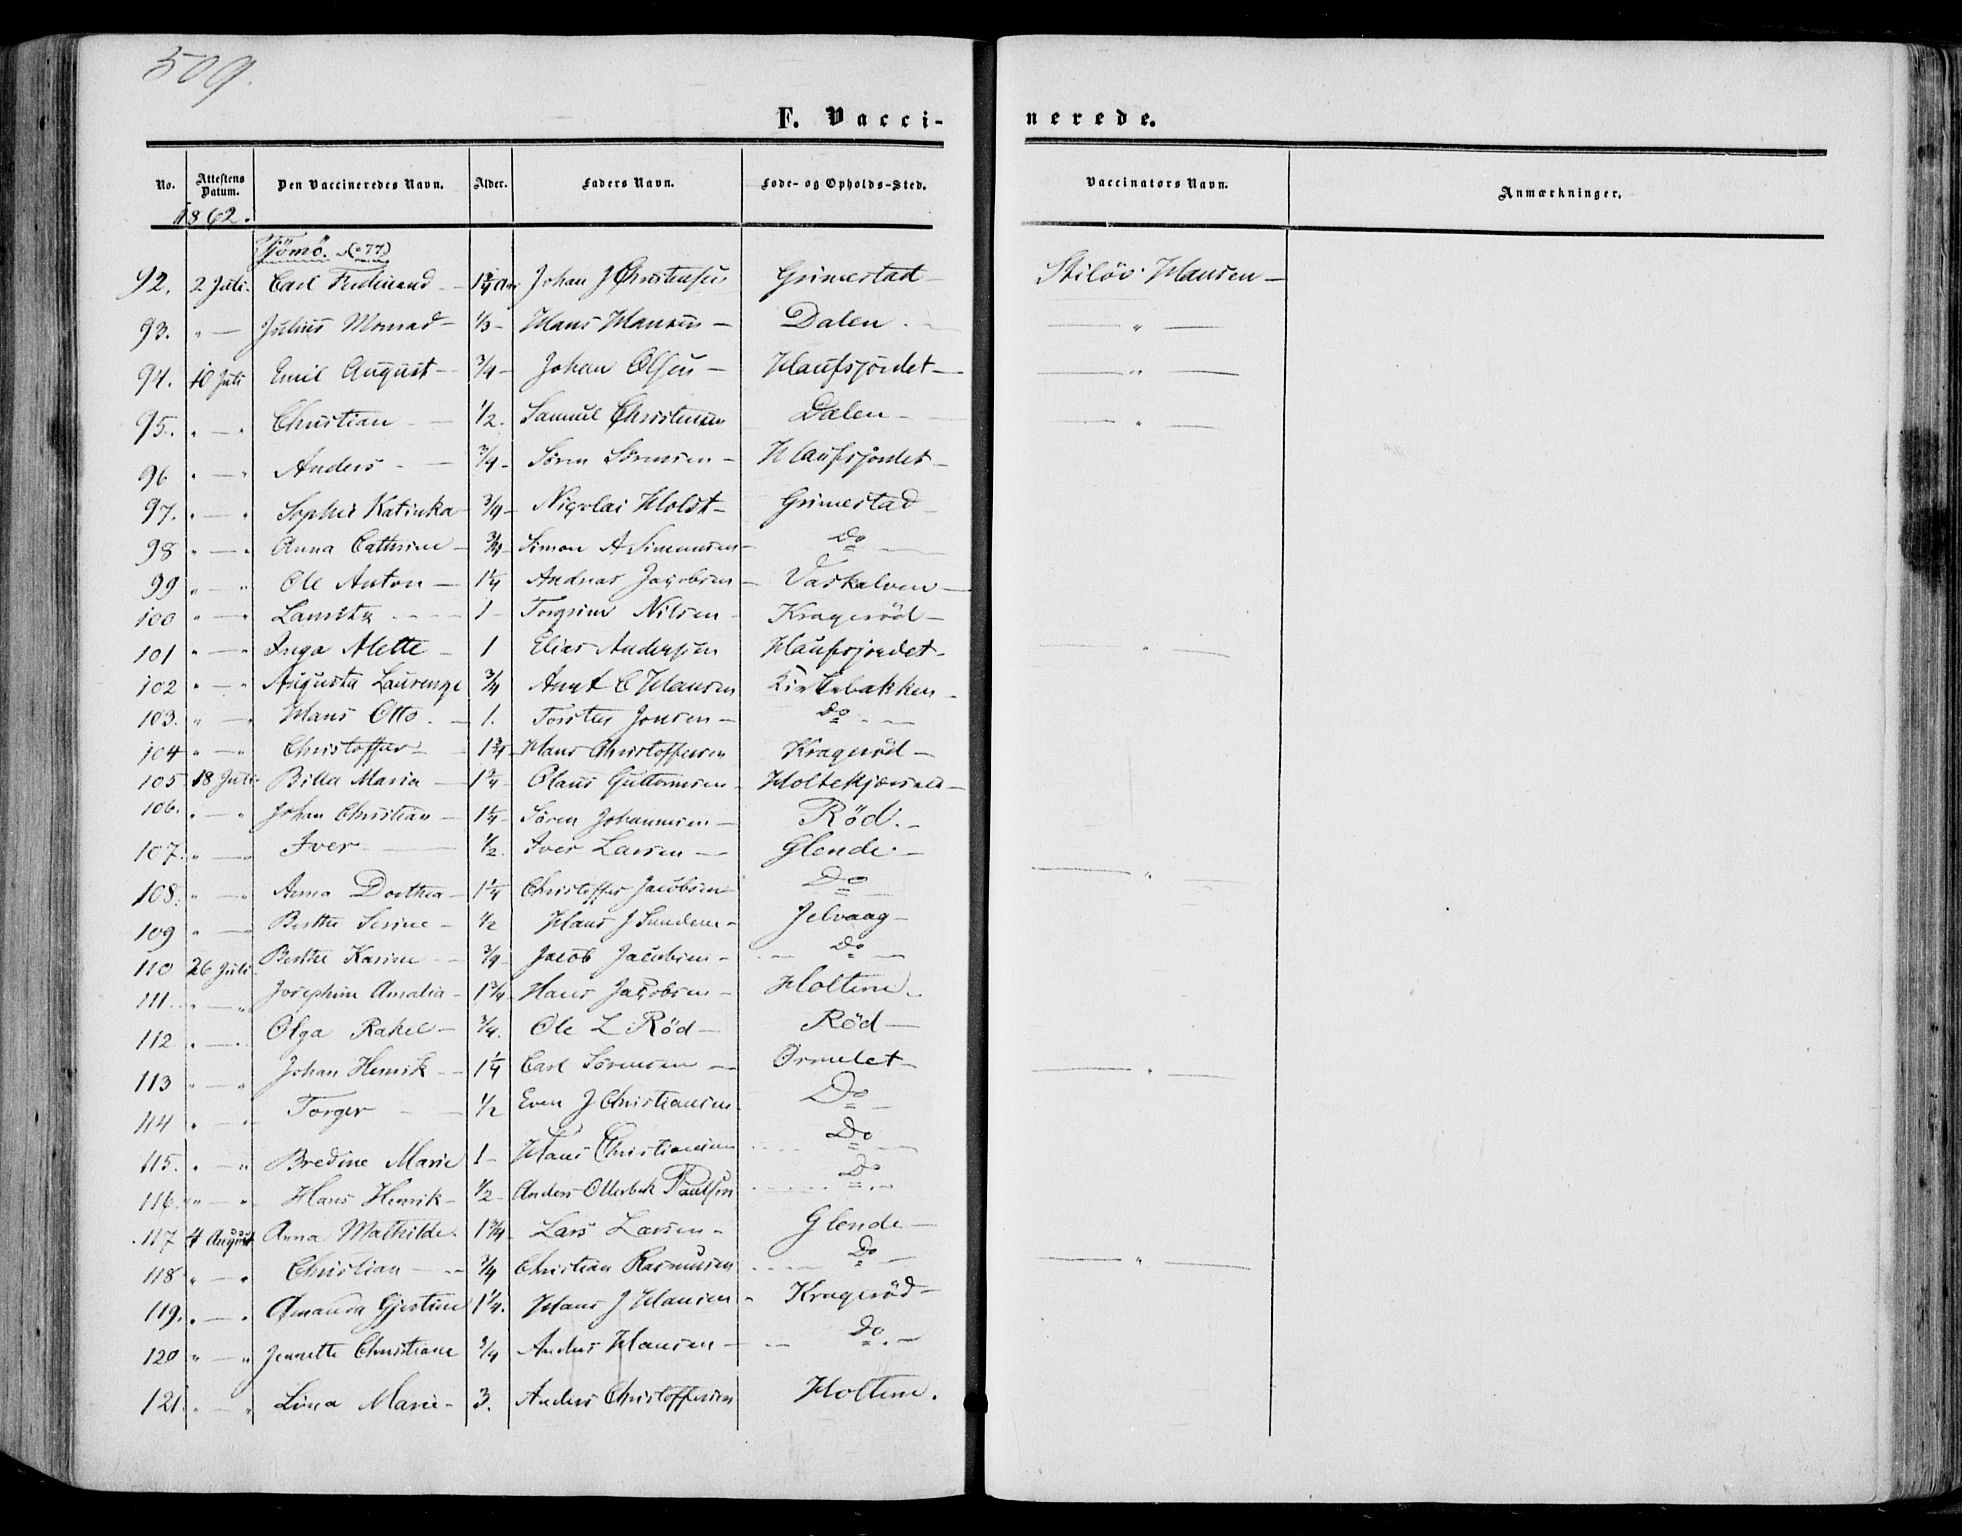 509.
F. Vaccinerede.
No. Attestens Datum. Den Vaccineredes Navn. Alder. Faders Navn. Føde- og Opholds-Sted. Vaccinators Navn. Anmærkninger.
1862.
Tjömö. (77)
92. 2 Juli. Carl Ferdinand — 1¾ Johan J Christensen Grimestad — Hansen —
93. " — Julius — 1/3 — Hans Hansen — Dalen — — " —
94. 10 Juli Emil August — 3/4 — Johan Olsen — Haufsjordet — — " —
95. " — " Christian — 1/2. Samuel Christensen Dalen — — " —
96 " — " Anders — 3/4 — Sören Sörensen — Haufsjordet —
97. " — " Sophie Katinka 3/4 — Nicolai Holdt — Grimestad
98 " — " Anna Cathrine — 3/4 Simon A Simonsen — Do —
99 " — " Ole Anton — 1¼ Andreas Jacobsen — Vaskalven —
100 " — " Lauritz — 1 — Torgrim Nilsen — Krageröd —
101 " — " Inga Mette — 1 Elias Andersen Haufsjordet —
102 " — " Augusta Laurenze 3/4 C Hansen Kirkebakken —
103. " — " Hans Otto. — 1. Torsten Jonsen — Do —
104 " — " Christoffer — 1¾ — Hans Christoffersen Krageröd —
105 18 Juli Billa Maria — 1¾ — Claus Guttormsen — —
106. " — " Johan Christian — 1¼ — Sören Johannesen — Röd. —
107. " — " Iver — 1/2. Iver Larsen — Glende —
108. " — " Anna Dorthea — 1¼ Christoffer Jacobsen Do — " —
109 " — Berthe Serine — 1/2 Hans J Sundene — Jelvaag —
110 26 Juli Berthe Karine — 3/4 — Jacob Jacobsen — Do —
111. " — " Josephine Amalia — 1¾ — Hans Jacobsen — Holtene.
112 " — " Olga Rakel — 3/4. Ole L Röd — Röd —
113 " — " Johan Henrik — 1¼ Carl Sörensen — Ormelet — — " —
114 " — " Torger — 1/2 Even J Christiansen Do —
115. " — " Bredine Marie 1 — Hans Christiansen Do —
116 " — " Hans Henrik — 1/2 — Anders Otterbek Paulsen Do —
117 4 August Anna Mathilde. 1¾ — Lars Larsen — Glende —
118 " — " Christian — 3/4 Christian Rasmusen Do — — " —
119. " — " Amanda Gjestine 1¼. Hans J Hansen — Krageröd —
120 " — " Jennette Christiane 3/4 Anders Hansen — Do —
121. " — " Lina Marie — 3. Anders Christoffersen Holtene.